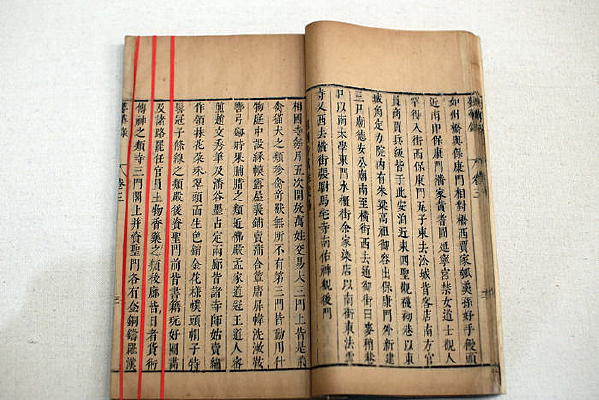 夢華錄 卷三
如州橋與保康門相對投西賈家瓠羹孫好手饅頭
近南即保康門潘家黃耆圓延寧宮禁女道士觀人
罕得入街西保康門瓦子東去沿城皆客店南方官
員商賈兵級皆于此安泊近東四聖觀襪袎巷以東
城角定力院內有朱梁高祖御容出保康門外新建
三尸廟德安公廟南至橫街西去通御街曰麥稍巷
口以南太學東門水櫃街余家染店以南街東法雲
寺又西去橫街張駙馬宅寺南佑神觀後門
相國寺每月五次開放萬姓交易大三門上皆是飛
禽猫犬之類珍禽奇獸無所不有第二三門皆動用什
物庭中設綵幙露屋義鋪賣蒲合簟席屏幃洗漱鞍
轡弓劍時果腊脯之類近佛殿孟家道冠王道人蜜
煎趙文秀筆及潘谷墨占定兩廊皆諸寺師姑賣繡
作領抹花朵珠翠頭面生色銷金花樣幞頭帽子特
髻冠子絛線之類殿後資聖門前皆書籍玩好圖畫
及諸路罷任官員土物香藥之類後廊皆日者貨術
傳神之類寺三門閣上并資聖門各有金銅鑄羅漢
夢華錄 卷三